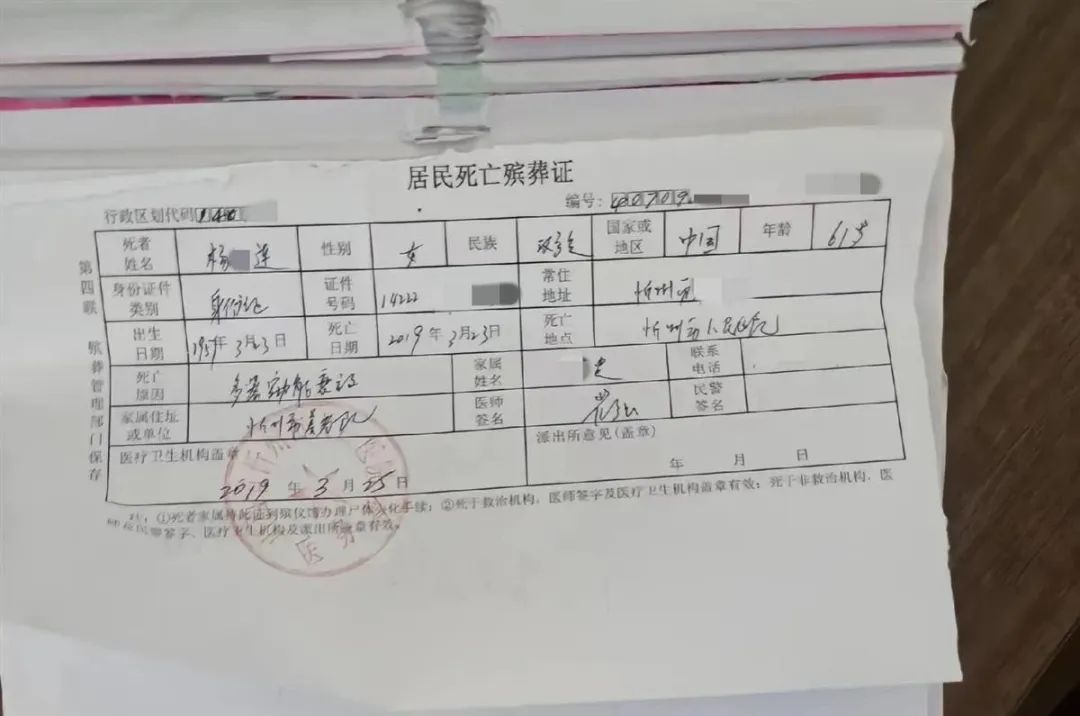 居民死亡殡葬证
行政区划代码
编号:
死者姓名 杨 莲 性别 女 民族 汉 国家或地区 中国 年龄 61岁
身份证件类别 身份证 证件号码 14222 常住地址 忻州市
出生日期 年3月23日 死亡日期 2019年3月23日 死亡地点 忻州市人民医院
死亡原因 多器官功能衰竭 家属姓名 联系电话
家属住址或单位 忻州市 医师签名 民警签名
医疗卫生机构盖章 派出所意见(盖章)
2019年3月25日 年 月 日
注:①死者家属持此证到殡仪馆办理尸体火化手续;②死于救治机构,医师签字及医疗卫生机构盖章有效;死于非救治机构,医
师及民警签字、医疗卫生机构及派出所盖章有效。
第四联 殡葬管理部门保存